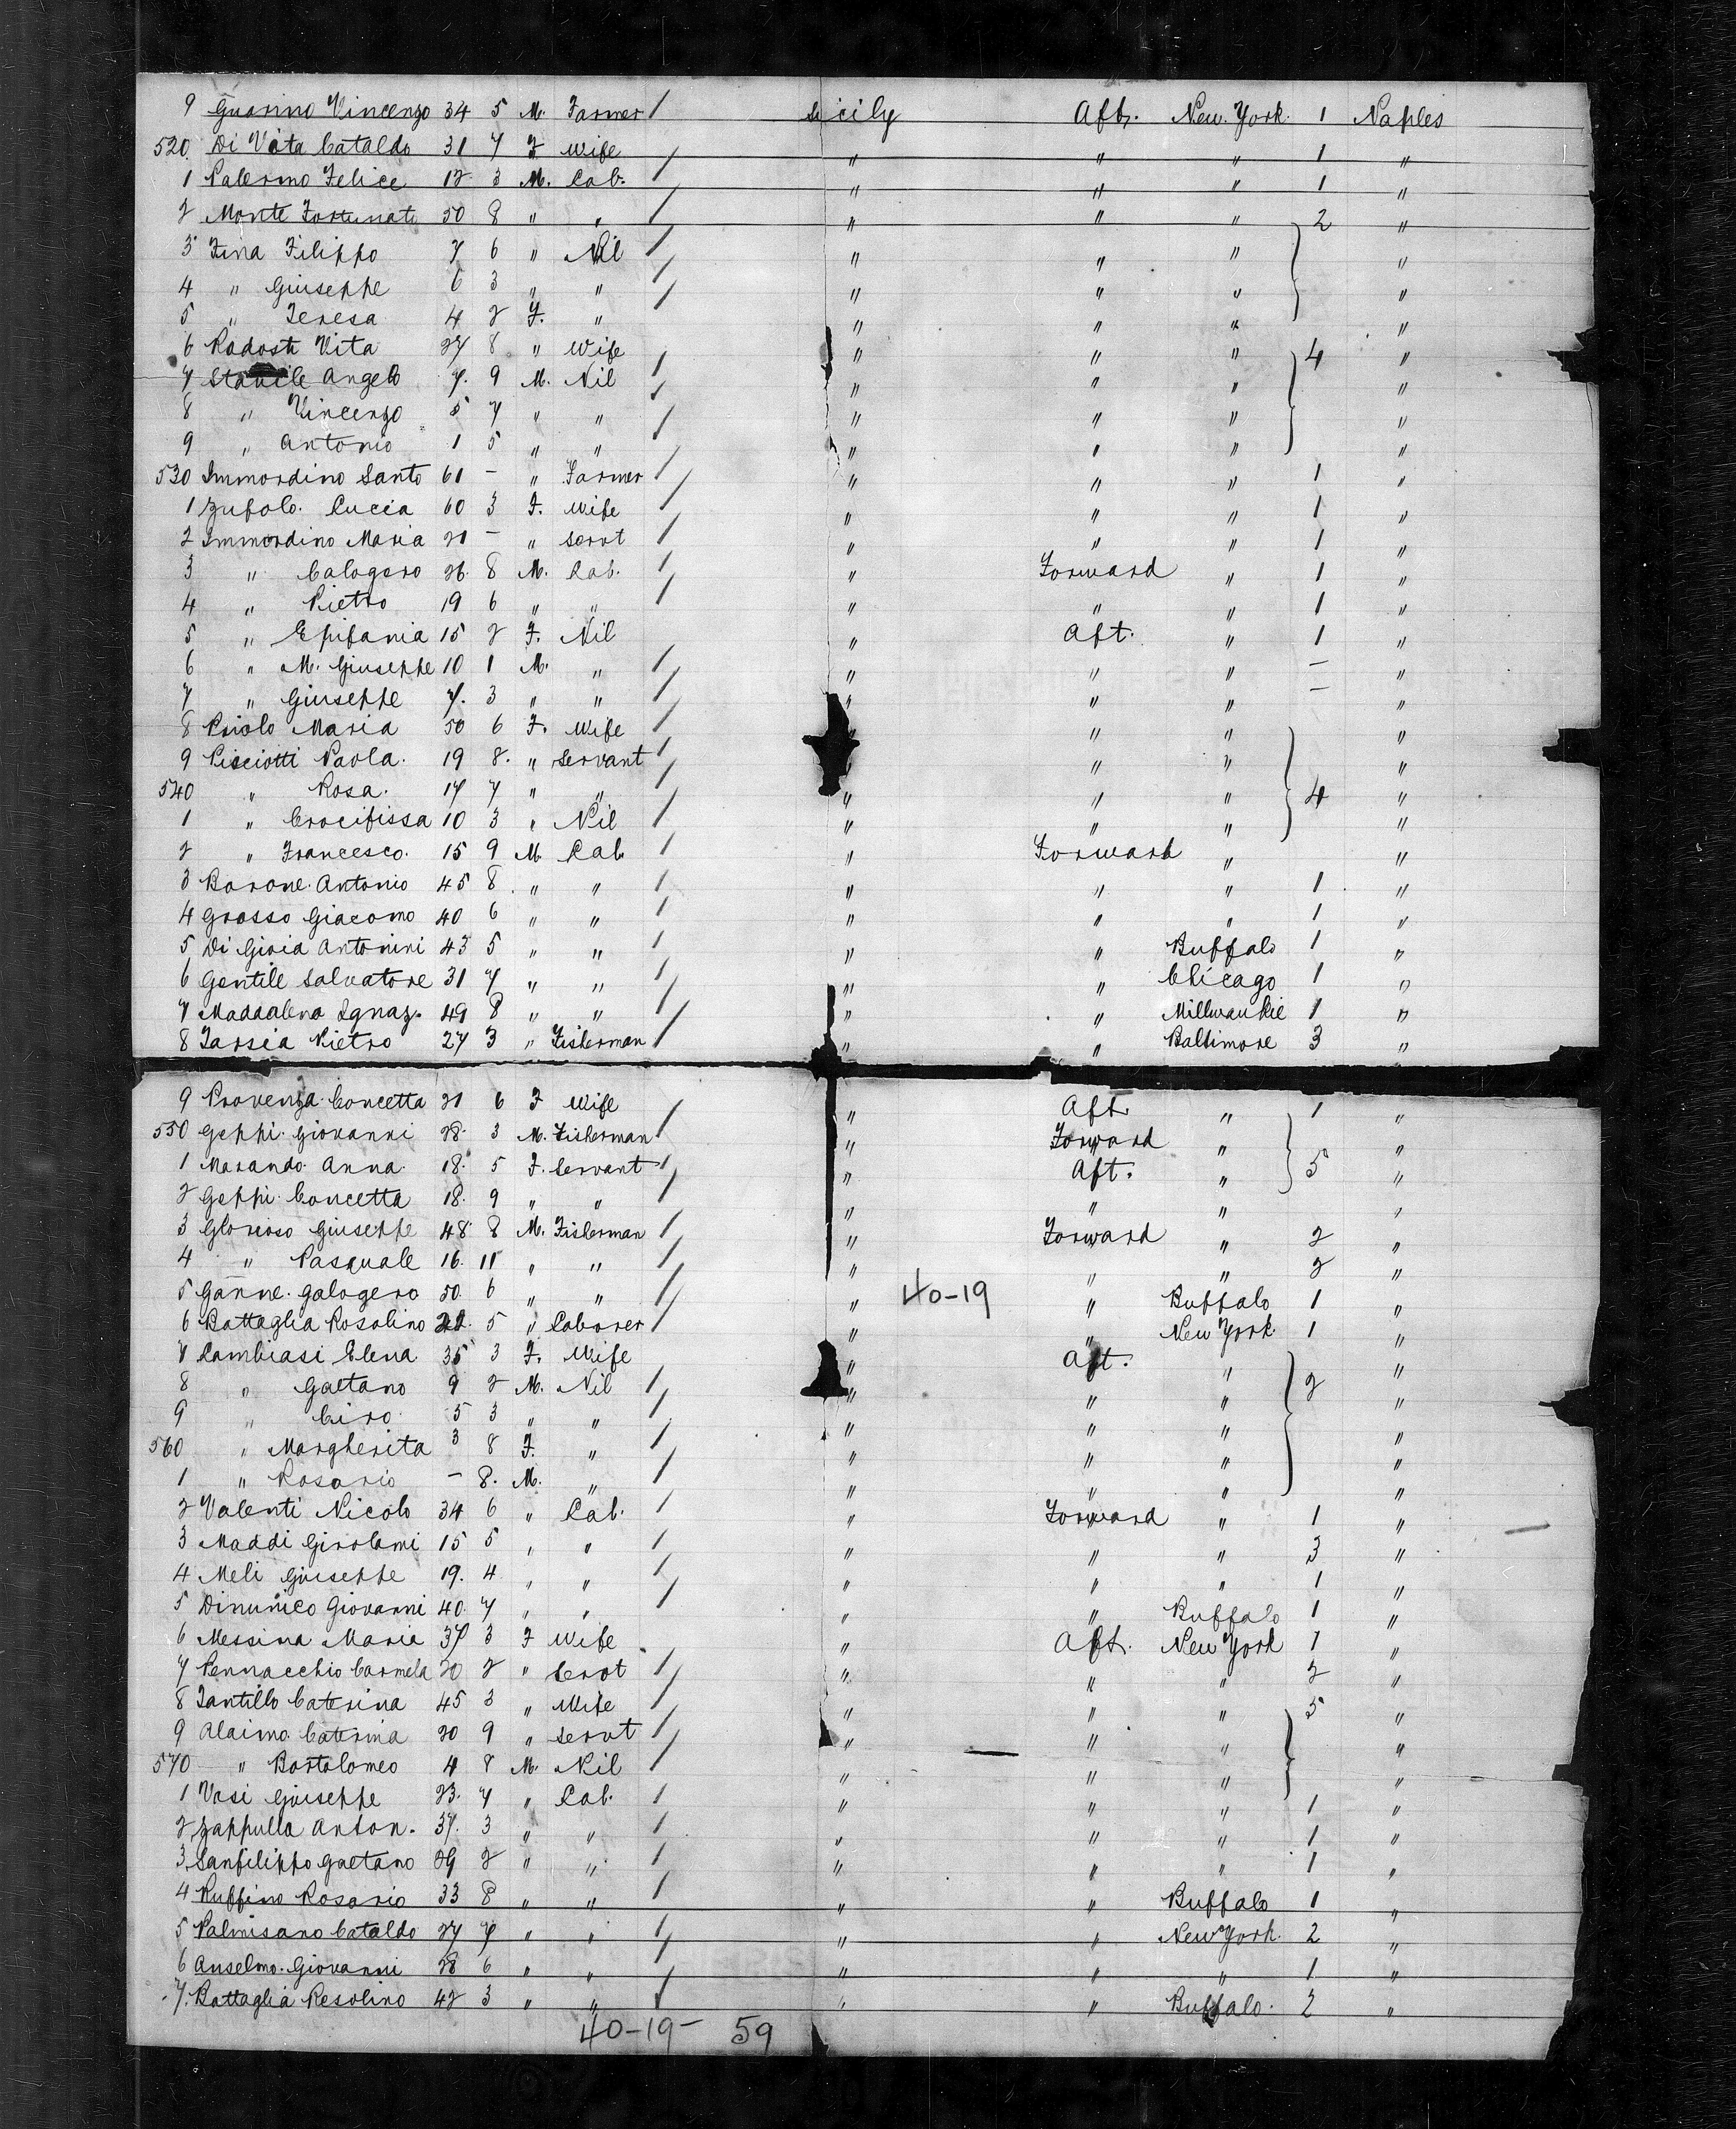 9 Guarino Vincenzo 34 5 M. Farmer / Sicily Aft. New York. 1 Naples
520. Di Vita Cataldo 31 7 F wife " " " 1 "
1 Palermo Felice 12 3 M. Lab. / " " " 1 "
2 Monte Fortunato 50 8 " " / " " " 2 "
3 Fina Filippo 7 6 " Nil / " " " "
4 " Giuseppe 6 3 " " / " " " "
5 " Teresa 4 2 F. " / " " " "
6 Radosti Vita 27 8 " Wife " " " 4 "
7 Stabile Angelo 7. 9 M. Nil / " " " "
8 " Vincenzo 5 7 " " / " " " "
9 " Antonio 1 5 " " / " " " "
530 Immordino Santo 61 – " Farmer / " " " 1 "
1 Zufolo. Lucia 60 3 F. Wife / " " " 1 "
2 Immordino Maria 21 – " servt / " " " 1 "
3 " Calogero 26. 8 M. Lab. / " Forward " 1 "
4 " Pietro 19 6 " " / " " " 1 "
5 " Epifania 15 2 F. Nil " Aft. " 1 "
6 " M. Giuseppe 10 1 M. " / " " " – "
7 " Giuseppe 7. 3 " " / " " " – "
8 Priolo Maria 50 6 F. Wife / " " " "
9 Pisciotti Paola. 19 8. " Servant / " " " "
540 " Rosa. 17 7 " " / " " " 4 "
1 " Crocifissa 10 3 " Nil / " " " "
2 " Francesco. 15 9 M. Lab. / " Forward " "
3 Barone. Antonio 45 8. " " / " " " 1 "
4 Grosso Giacomo 40 6 " " / " " " 1 "
5 Di Gioia Antonini 43 5 " " / " " Buffalo 1 "
6 Gentile Salvatore 31 7 " " / " " Chicago 1 "
7 Maddalena Ignaz. 49 8 " " / " " Millwaukie 1 "
8 Tarsia Pietro 27 3 " Fisherman / " " Baltimore 3 "
9 Provenza. Concetta 21 6 F Wife / " Aft. " 1 "
550 Geppi. Giovanni 28. 3 M. Fisherman / " Forward " "
1 Marando. Anna. 18. 5 F. Servant / " Aft. " 5 "
2 Geppi. Concetta 18. 9 " " / " " " "
3 Glorioso Giuseppe 48. 8 M. Fisherman / " Forward " 2 "
4 " Pasquale 16. 11 " " / " " " 2 "
5 Ganne. Galogero 50. 6 " " / " 40-19 " Buffalo 1 "
6 Battaglia Rosolino 22. 5 " Laborer / " " New York. 1 "
7 Lambiasi Elena 35 3 F. Wife " Aft. " "
8 " Gaetano 9 2 M. Nil / " " " 2 "
9 " Ciro. 5 3 " " / " " " "
560 " Margherita 3 8 F. " / " " " "
1 " Rosario – 8. M. " / " " " "
2 Valenti Nicolo 34 6 " Lab. / " Forward " 1 "
3 Maddi Girolami 15 5 " " / " " " 3 "
4 Meli Giuseppe 19. 4 " " / " " " 1 "
5 Dinunico Giovanni 40. 7 " " / " " Buffalo 1 "
6 Messina Maria 37 3 F Wife " Aft. New York 1 "
7 Pennacchio Carmela 20 2 " Servt / " " " 2 "
8 Tantillo Caterina 45 3 " Wife / " " " 5 "
9 Alaimo. Caterina 20 9 " servt / " " " "
570 " Bartolomeo 4 8 M. Nil / " " " "
1 Vasi Giuseppe 23. 7 " Lab. / " " " 1 "
2 Zappulla Anton. 37. 3 " " / " " " 1 "
3 Sanfilippo Gaetano 29 2 " " / " " " 1 "
4 Ruffino Rosario 33 8 " " / " " Buffalo 1 "
5 Palmisano Cataldo 27 7 " " / " " New York. 2 "
6 Anselmo. Giovanni 28 6 " " / " " " 1 "
7. Battaglia Resolino 42 3 " " / " " Buffalo. 2 "
40-19- 59